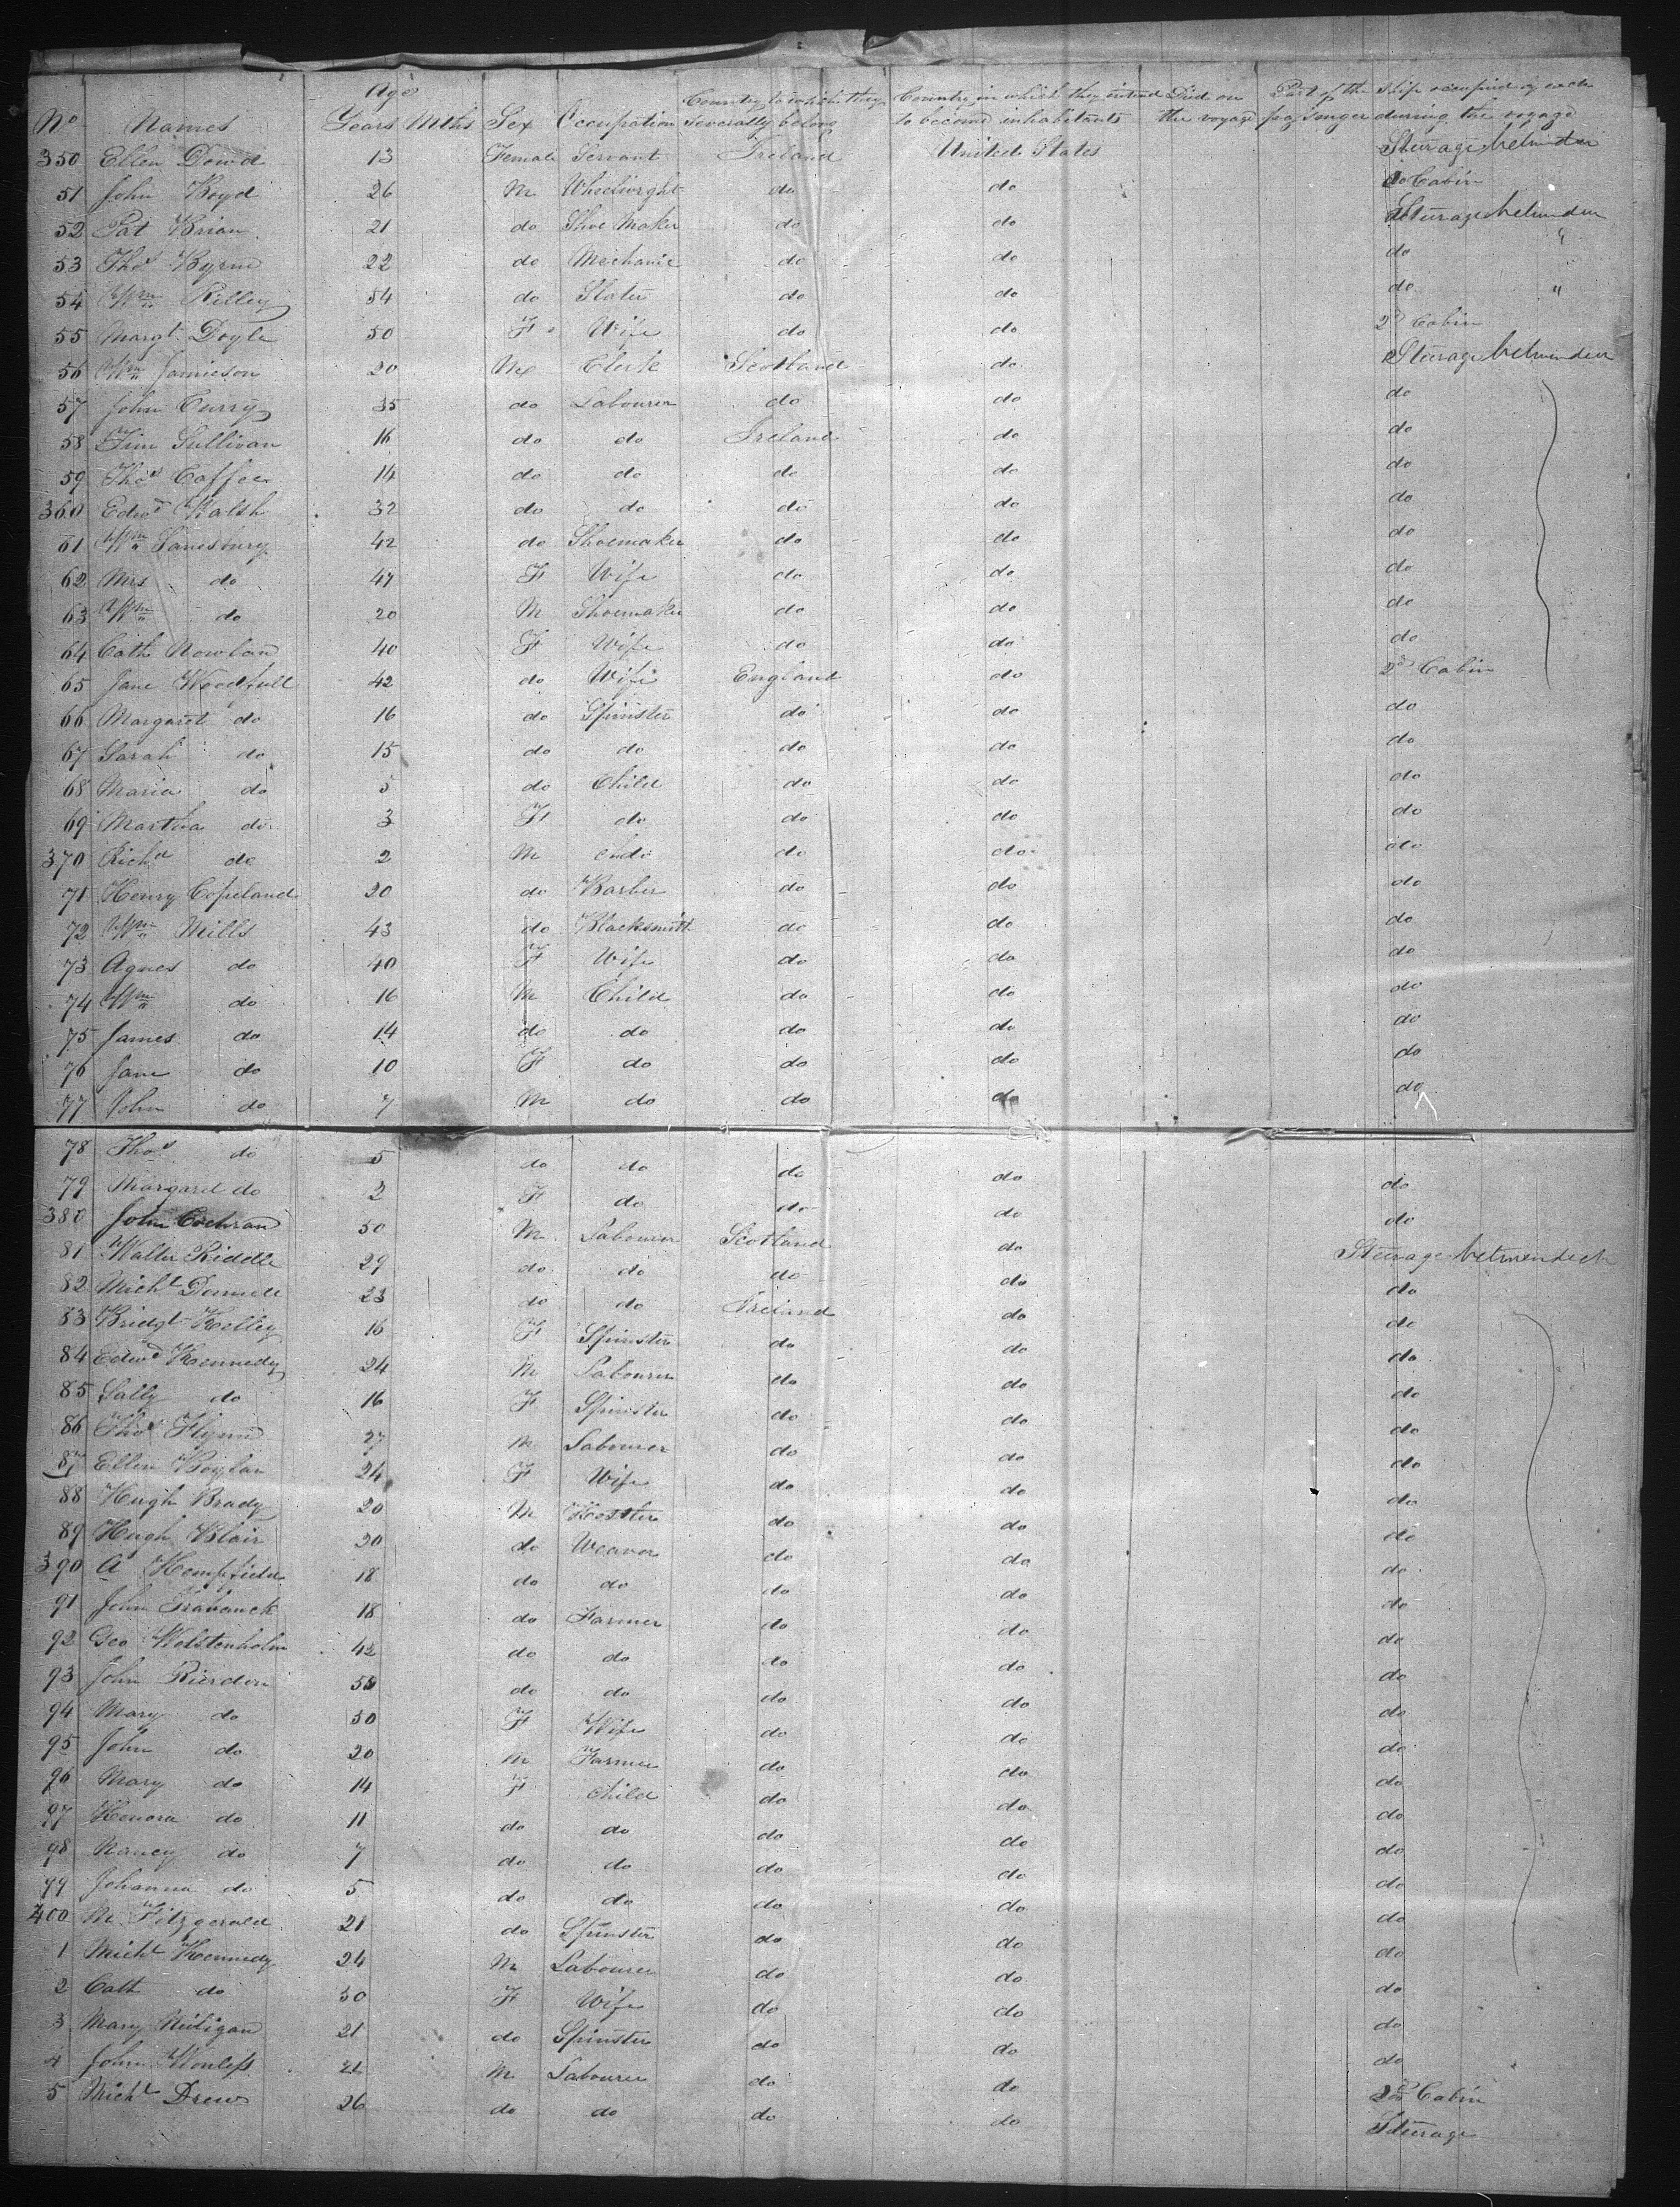 Age
No Names Years Mths Sex Occupation Country to which they severally belong Country in which they intend to become inhabitants Died on the voyage Part of the ship occupied by each passenger during the voyage
350 Ellen Dowd 13 Female Servant Ireland United States Steerage
51 John Boyd 26 M do do Cabin
52 Pat Brian 21 do Shoe Maker do do Steerage
53 Thos Byrne 22 do Mechanic do do do "
54 Wm Rilley 54 do Slater do do do "
55 Margt Doyle 50 F Wife do do 2d Cabin
56 Wm Jamieson 20 M Clerk Scotland do Steerage
57 John Curry 35 do Labourer do do do
58 Tim Sullivan 16 do do Ireland do do
59 Thos Coffee 14 do do do do do
360 Edwd Walsh 32 do do do do do
61 Wm 42 do Shoemaker do do do
62 Mrs do 47 F Wife do do do
63 Wm do 20 M Shoemaker do do do
64 Cath Nowlan 40 F Wife do do do
65 Jane Woodfull 42 do Wife England do 2d Cabin
66 Margaret do 16 do Spinster do do do
67 Sarah do 15 do do do do do
68 Maria do 5 do Child do do do
69 Martha do 3 F do do do do
370 Richd do 2 M do do do
71 Henry Copeland 20 do Barber do do do
72 Wm Mills 43 do Blacksmith do do do
73 Agnes do 40 F Wife do do do
74 Wm do 16 M Child do do do
75 James do 14 do do do do do
76 Jane do 10 F do do do do
77 John do 7 M do do do do
78 Thos do 5 do do do do do
79 Margaret do 2 F do do do do
380 John Cochran 50 M Labourer Scotland do Steerage
81 Walter Riddle 29 do do do do do
82 Michl 23 do do Ireland do do
83 Bridgt Kelley 16 F Spinster do do do
84 Edwd Kennedy 24 M Labourer do do do
85 Sally do 16 F Spinster do do do
86 Thos Flynn 27 M Labourer do do do
87 Ellen Boylan 24 F Wife do do do
88 Hugh Brady 20 M Hostler do do do
89 Hugh Blair 30 do Weaver do do do
390 A Hempfield 18 do do do do do
91 John 18 do Farmer do do do
92 Geo Wolstenholm 42 do do do do do
93 John Rierdon do do do do do
94 Mary do 50 F Wife do do do
95 John do 20 M Farmer do do do
96 Mary do 14 F Child do do do
97 Honora do 11 do do do do do
98 Nancy do 7 do do do do do
99 Johanna do 5 do do do do do
400 M Fitzgerald 21 do Spinster do do do
1 Michl Kennedy 24 M Labourer do do do
2 Cath do 50 F Wife do do do
3 Mary Milligan 21 do Spinster do do do
4 John 21 M Labourer do do 2d Cabin
5 Michl Drew 26 do do do do Steerage